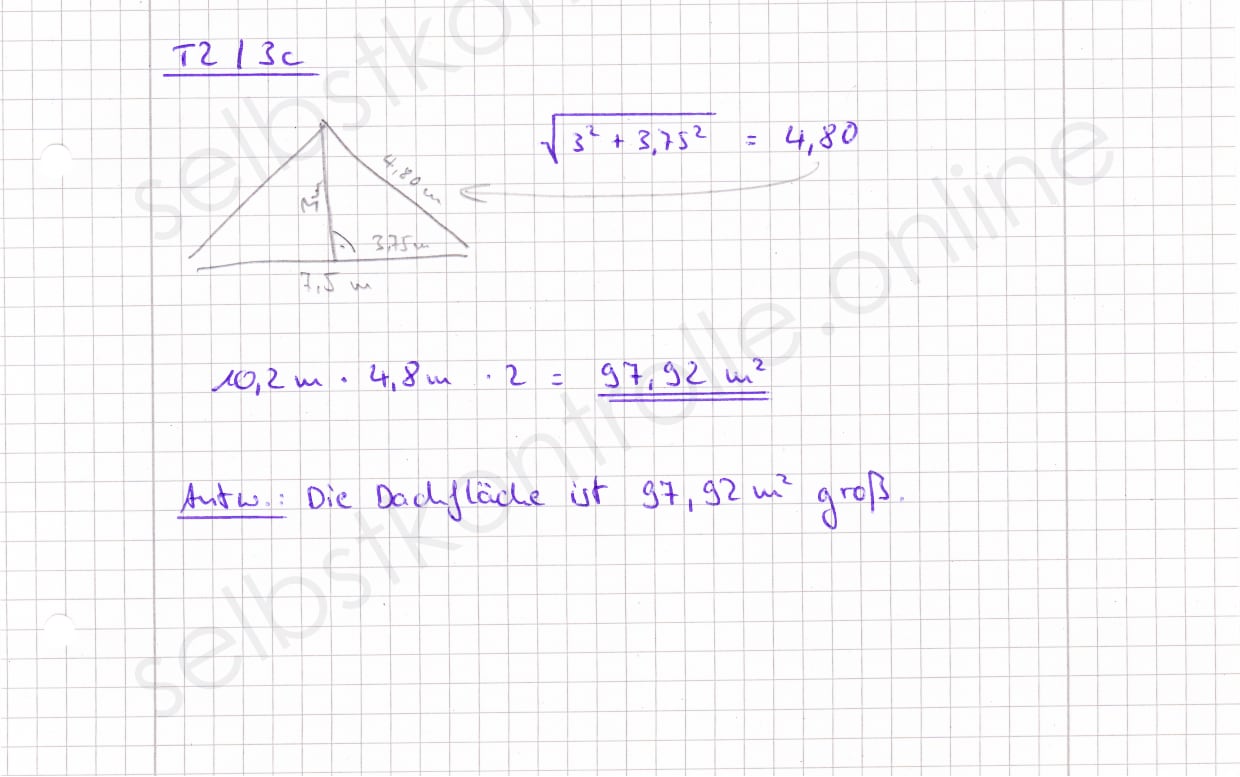 T2 / 3c
√3² + 3,75² = 4,80
4,80 m
3,75m
7,5 m
10,2 m · 4,8 m · 2 = 97,92 m²
Antw.: Die Dachfläche ist 97,92 m² groß.
selbstkontrolle.online
selbstkontrolle.online